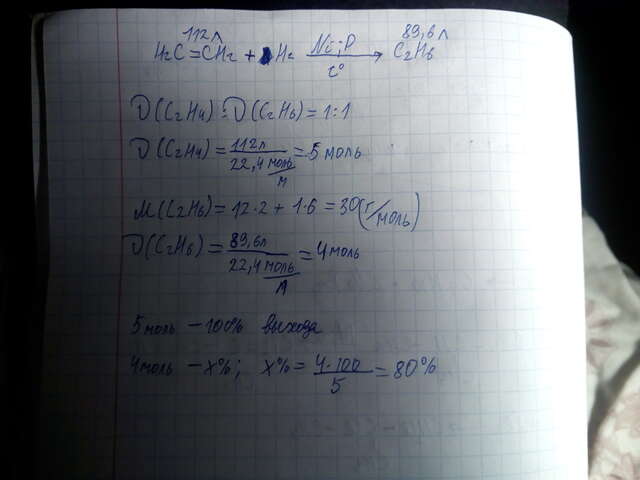 112л 89,6л
H₂C=CH₂ + H₂ Ni;P t° → C₂H₆
ν(C₂H₄):ν(C₂H₆)=1:1
ν(C₂H₄)=112л/22,4моль/л=5 моль
M(C₂H₆)=12·2+1·6=30(г/моль)
ν(C₂H₆)=89,6л/22,4моль/л=4моль
5моль – 100% выхода
4моль – x%; x%=4·100/5=80%